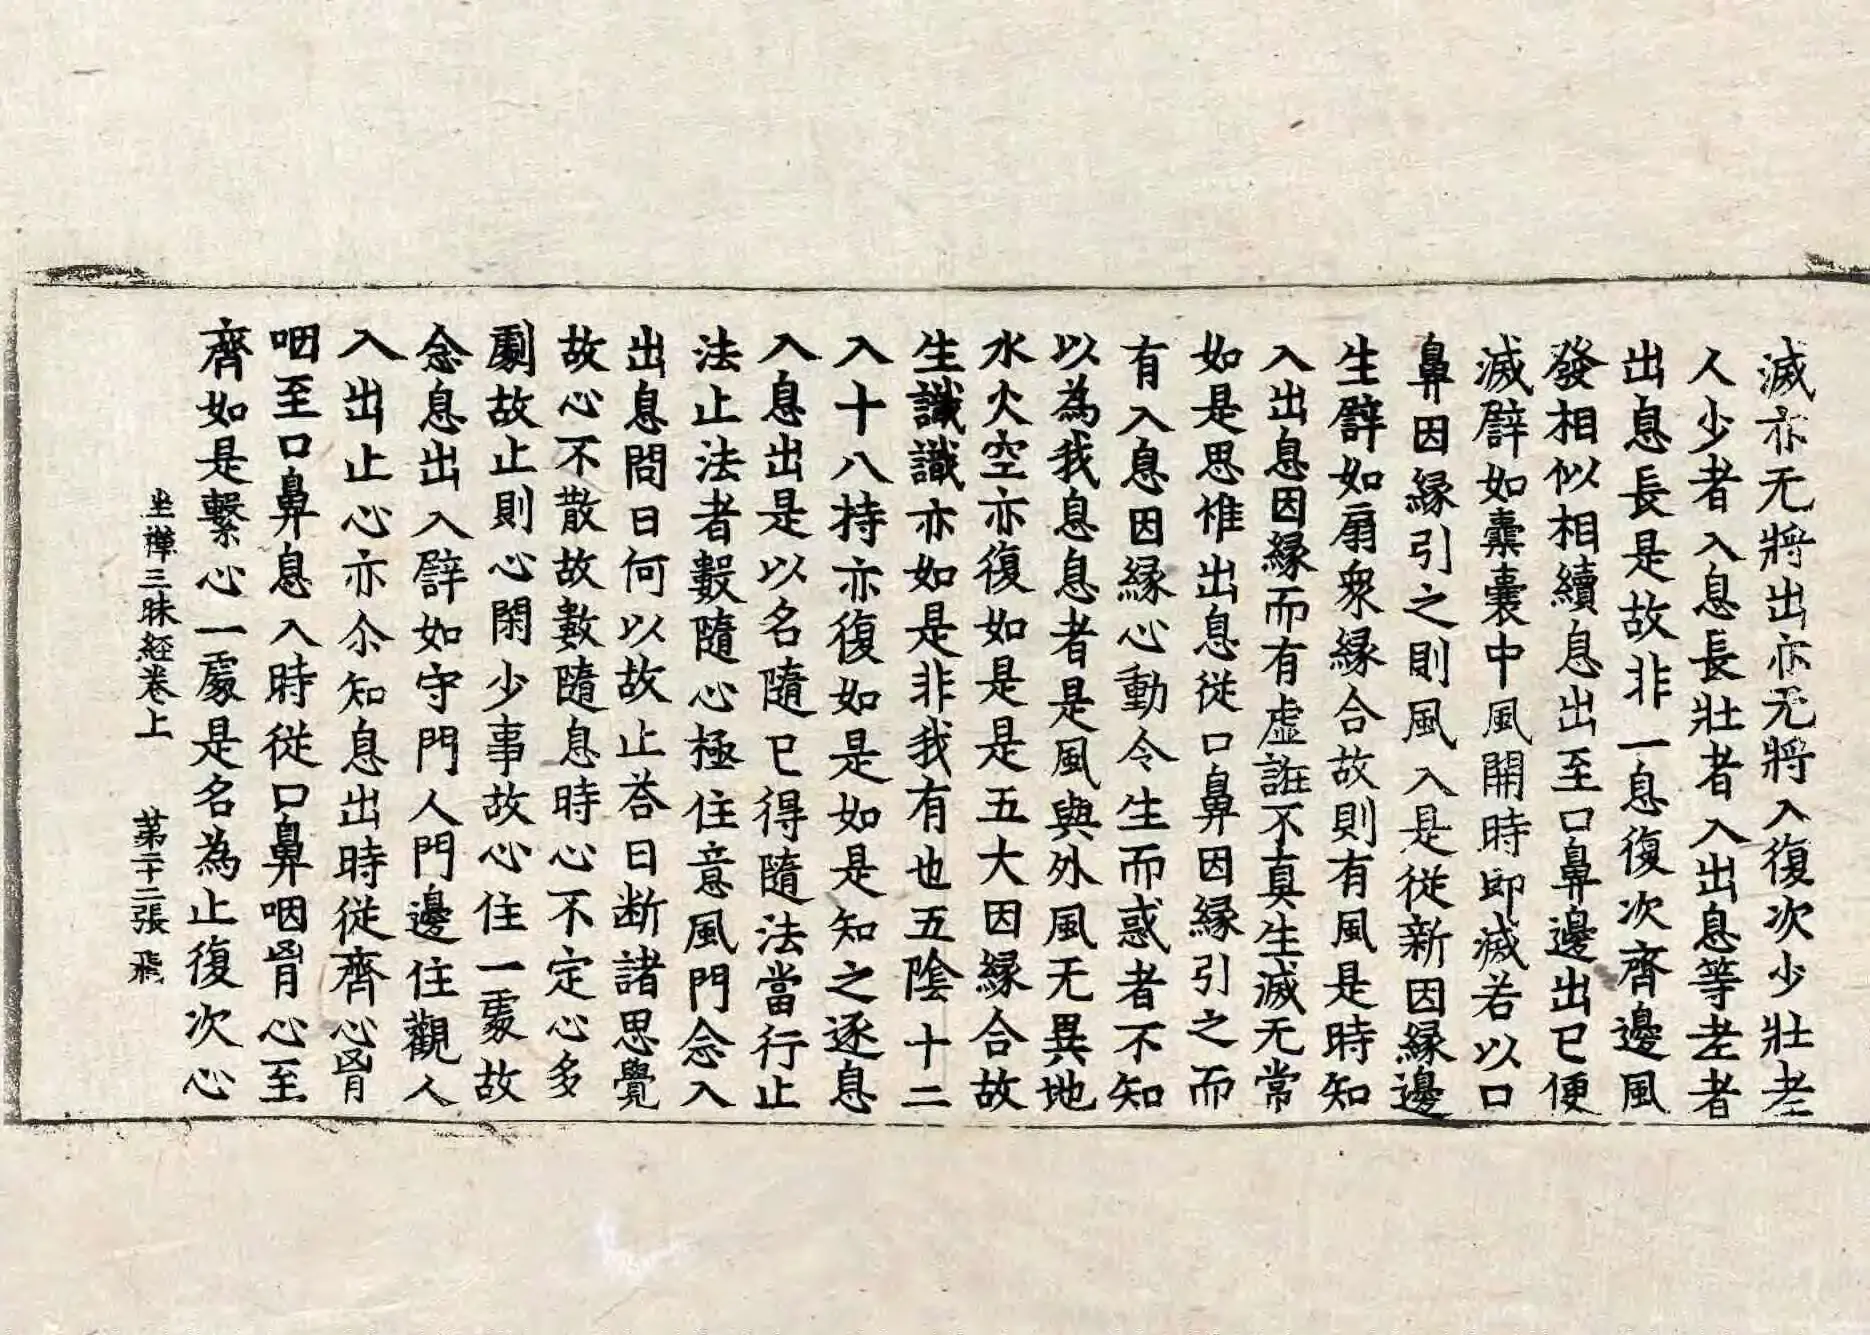 滅亦无將出亦无將入復次少壯老
人少者入息長壯者入出息等老者
出息長是故非一息復次齊邊風
發相似相續息出至口鼻邊出已便
滅譬如橐囊中風開時即滅若以口
鼻因縁引之則風入是從新因縁邊
生譬如扇衆縁合故則有風是時知
入出息因縁而有虚誑不真生滅无常
如是思惟出息從口鼻因縁引之而
有入息因縁心動令生而惑者不知
以為我息息者是風與外風无異地
水火空亦復如是是五大因縁合故
生識識亦如是非我有也五陰十二
入十八持亦復如是如是知之逐息
入息出是以名隨已得隨法當行止
法止法者數隨心極住意風門念入
出息問曰何以故止荅曰断諸思覺
故心不散故數隨息時心不定心多
劇故止則心閑少事故心住一處故
念息出入譬如守門人門邊住觀人
入出止心亦尒知息出時從齊心胷
咽至口鼻息入時從口鼻咽胷心至
齊如是繫心一處是名為止復次心
坐禪三昧経卷上　第二十二張　飛